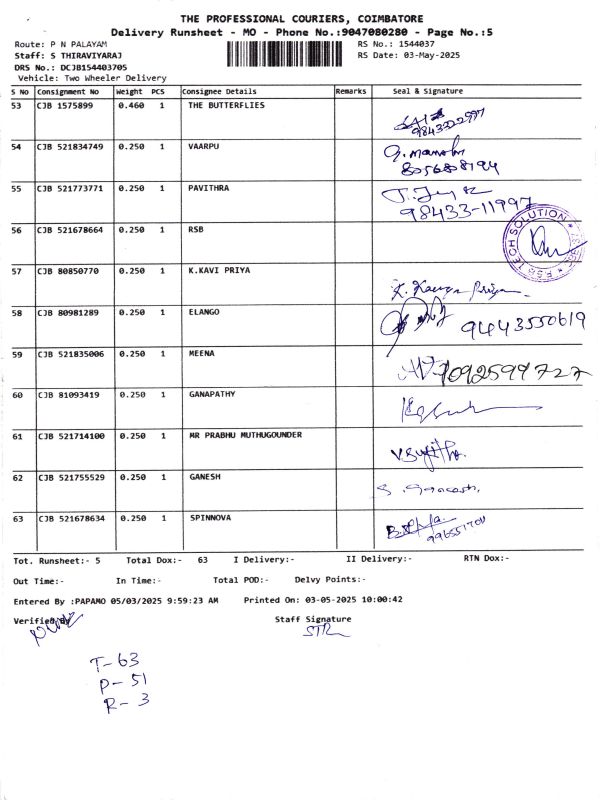 THE PROFESSIONAL COURIERS, COIMBATORE
Delivery Runsheet - MO - Phone No.:9047080280 - Page No.:5
Route: P N PALAYAM
Staff: S THIRAVIYARAJ
DRS No.: DCJB154403705
Vehicle: Two Wheeler Delivery
RS No.: 1544037
RS Date: 03-May-2025
S No Consignment No Weight PCS Consignee Details Remarks Seal & Signature
53 CJB 1575899 0.460 1 THE BUTTERFLIES
54 CJB 521834749 0.250 1 VAARPU
8056808194
55 CJB 521773771 0.250 1 PAVITHRA
98433-11997
56 CJB 521678664 0.250 1 RSB
RSB TECH SOLUTION
57 CJB 80850770 0.250 1 K.KAVI PRIYA
K. Kavya Priya
58 CJB 80981289 0.250 1 ELANGO
9443550619
59 CJB 521835006 0.250 1 MEENA
7092599727
60 CJB 81093419 0.250 1 GANAPATHY
61 CJB 521714100 0.250 1 MR PRABHU MUTHUGOUNDER
V.Sujitha
62 CJB 521755529 0.250 1 GANESH
63 CJB 521678634 0.250 1 SPINNOVA
Tot. Runsheet:- 5 Total Dox:- 63 I Delivery:- II Delivery:- RTN Dox:-
Out Time:- In Time:- Total POD:- Delvy Points:-
Entered By :PAPAMO 05/03/2025 9:59:23 AM Printed On: 03-05-2025 10:00:42
Verified By Staff Signature
STR
T-63
P-51
R-3